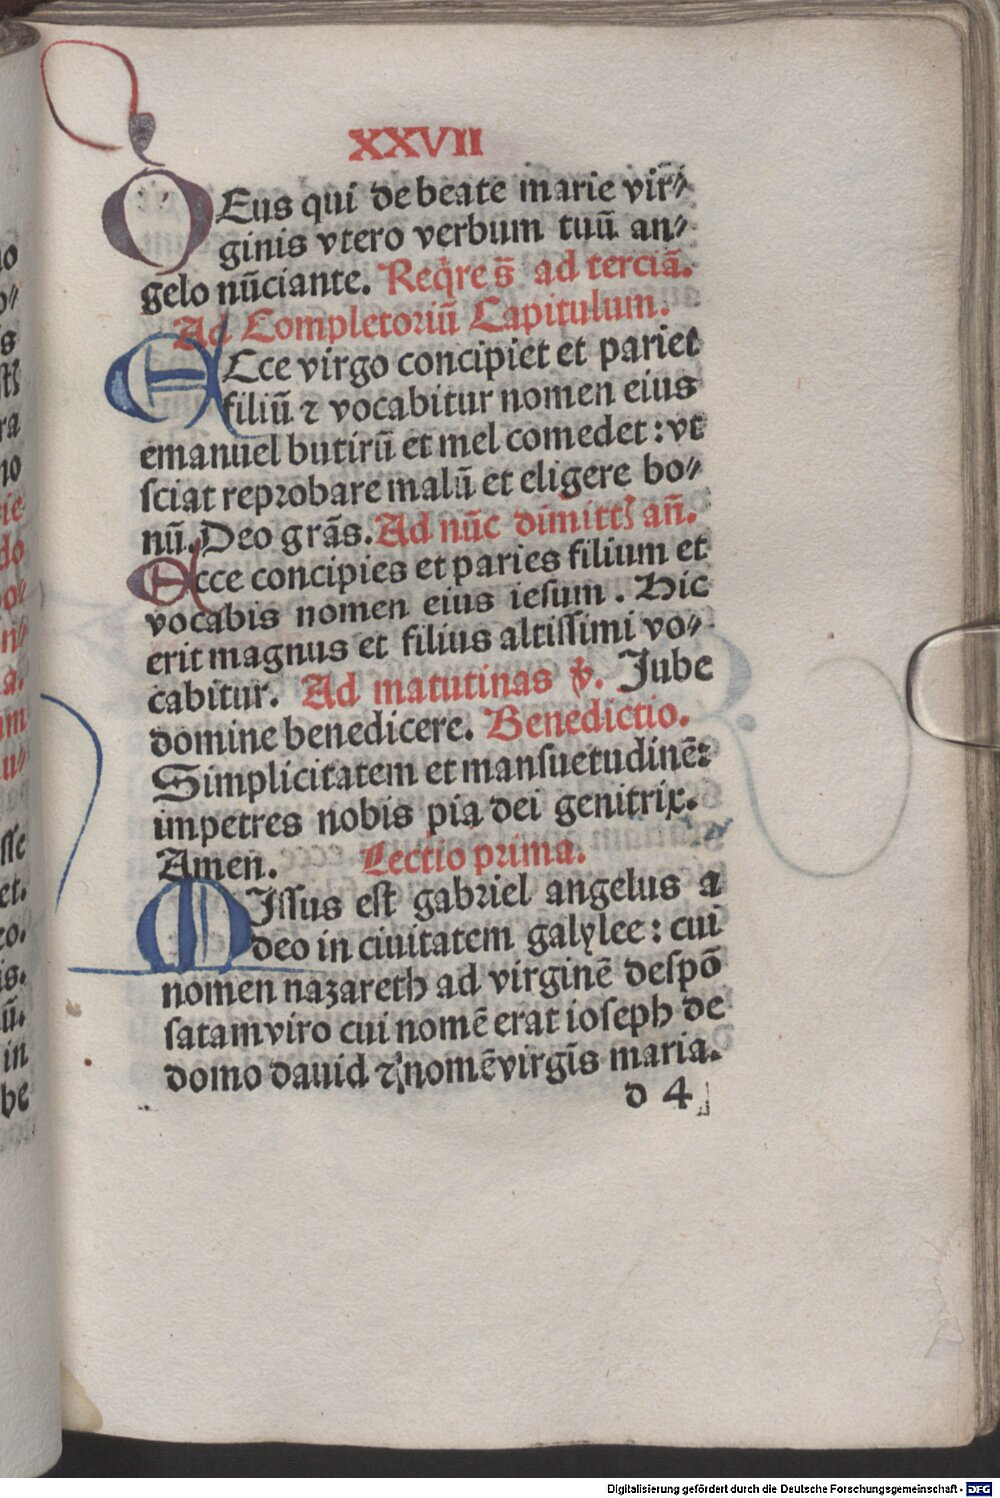 XXVII
DEus qui de beate marie vir⸗
ginis vtero verbum tuū an⸗
gelo nūciante. Req̄re s̄ ad terciā.
Ad Completoriū Capitulum.
ECce virgo concipiet et pariet
filiū ⁊ vocabitur nomen eius
emanuel butirū et mel comedet : vt
sciat reprobare malū et eligere bo⸗
nū. Deo grās. Ad nūc dimitt; añ.
Ecce concipies et paries filium et
vocabis nomen eius iesum . Hic
erit magnus et filius altissimi vo⸗
cabitur. Ad matutinas v̄. Jube
domine benedicere. Benedictio.
Simplicitatem et mansuetudinē:
impetres nobis pia dei genitrix.
Amen. Lectio prima.
MIssus est gabriel angelus a
deo in ciuitatem galylee : cui
nomen nazareth ad virginē despō
satam viro cui nomē erat ioseph de
domo dauid ⁊ nomē virgīs maria.
d 4
Digitalisierung gefördert durch die Deutsche Forschungsgemeinschaft - DFG